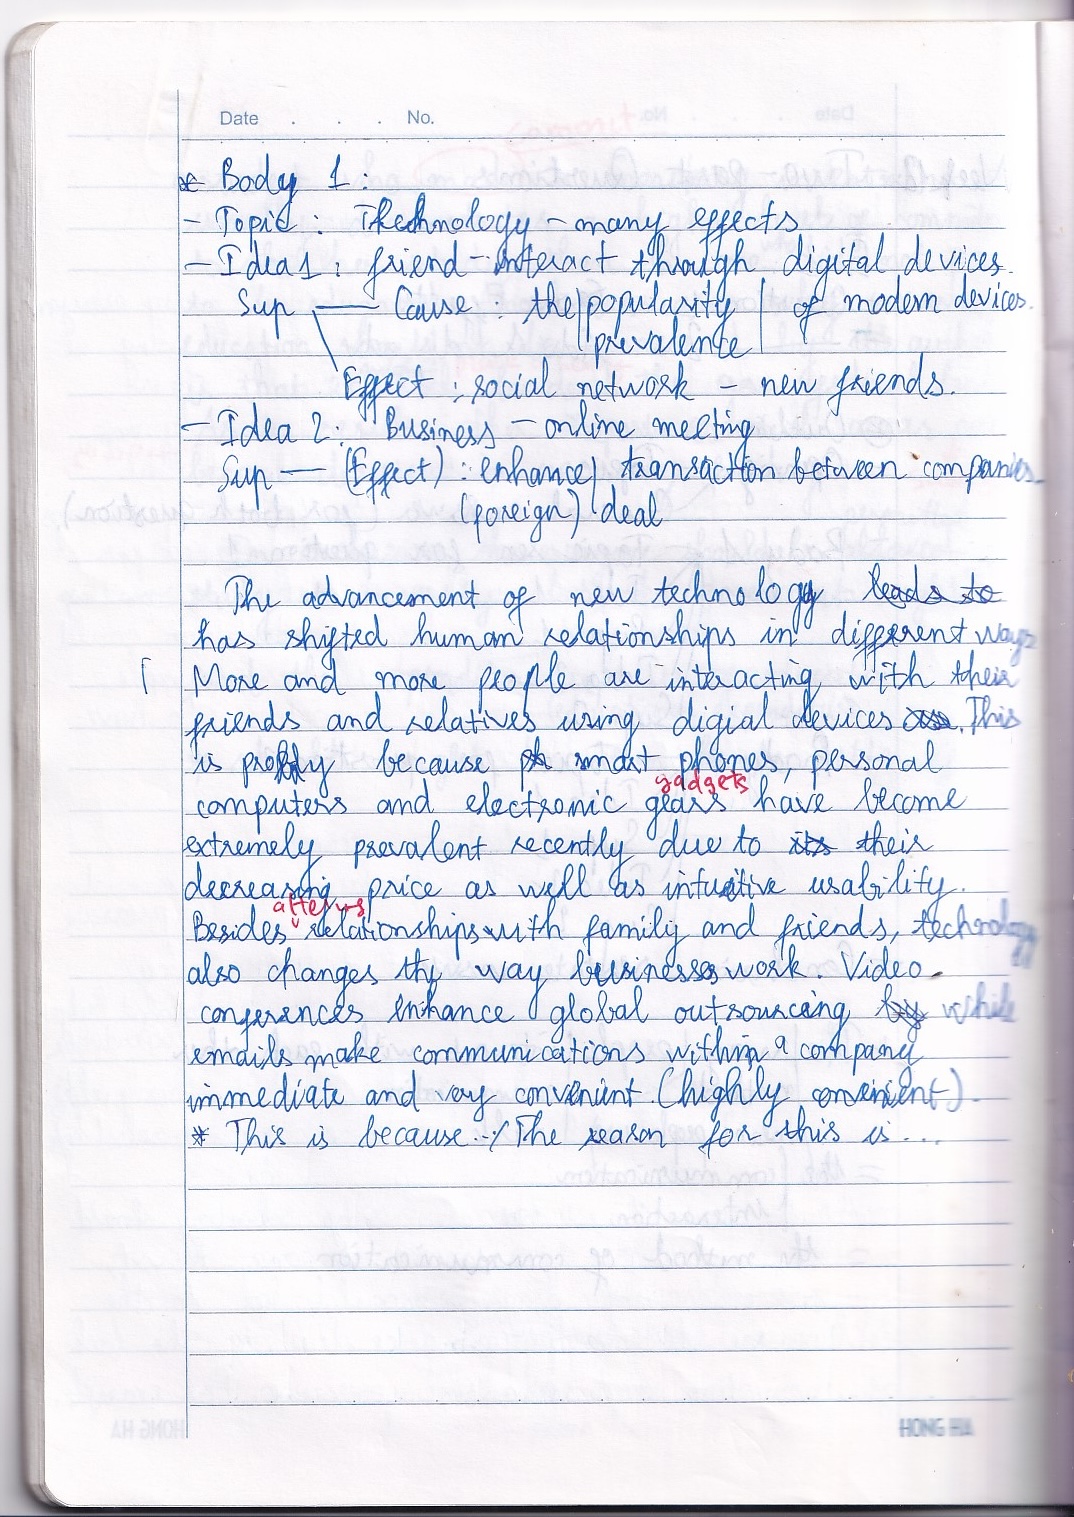 Date . . . No.
* Body 1 :
- Topic : Technology - many effects
- Idea 1 : friend - interact through digital devices.
Sup — Cause : the | popularity | of modern devices.
prevalence
Effect : social network - new friends.
- Idea 2 : Business - online meeting
Sup — (Effect) : enhance | transaction between companies
(foreign) | deal
The advancement of new technology leads to
has shifted human relationships in different ways
[ More and more people are interacting with their
friends and relatives using digial devices. This
is because smart phones, personal
gadgets
computers and electronic gears have become
extremely prevalent recently due to its their
decreasing price as well as intuitive usability.
alterws
Besides relationships with family and friends, technology
also changes thy way businesses work. Video
conferences enhance global outsourcing by while
emails make communications within a company
immediate and very convenient. (highly convenient).
* This is because.../The reason for this is ...
HONG HA